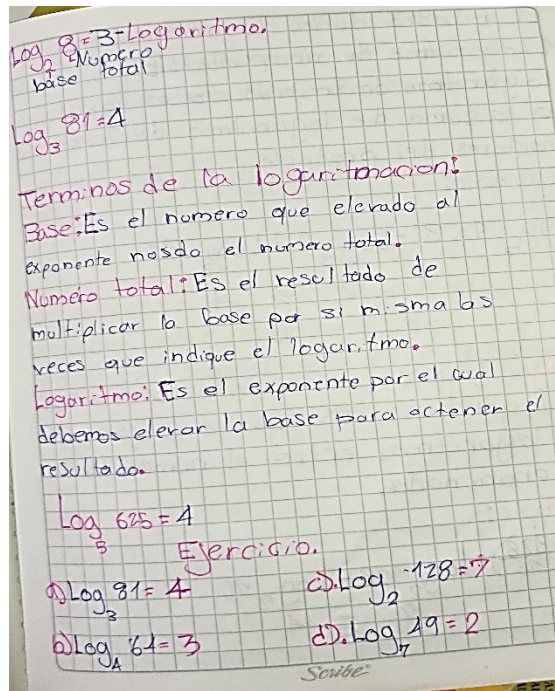 Log₂ 8=3-Logaritmo.
Numero
base total
Log₃ 81=4
Terminos de la logaritmacion:
Base: Es el numero que elevado al
exponente nosda el numero total.
Numero total: Es el resultado de
multiplicar la base por si misma las
veces que indique el logaritmo.
Logaritmo: Es el exponente por el cual
debemos elevar la base para octener el
resultado.
Log₅ 625=4
Ejercicio.
a) Log₃ 81=4 c). Log₂ 128=7
b) Log₄ 64=3 d). Log₇ 49=2
Scribe